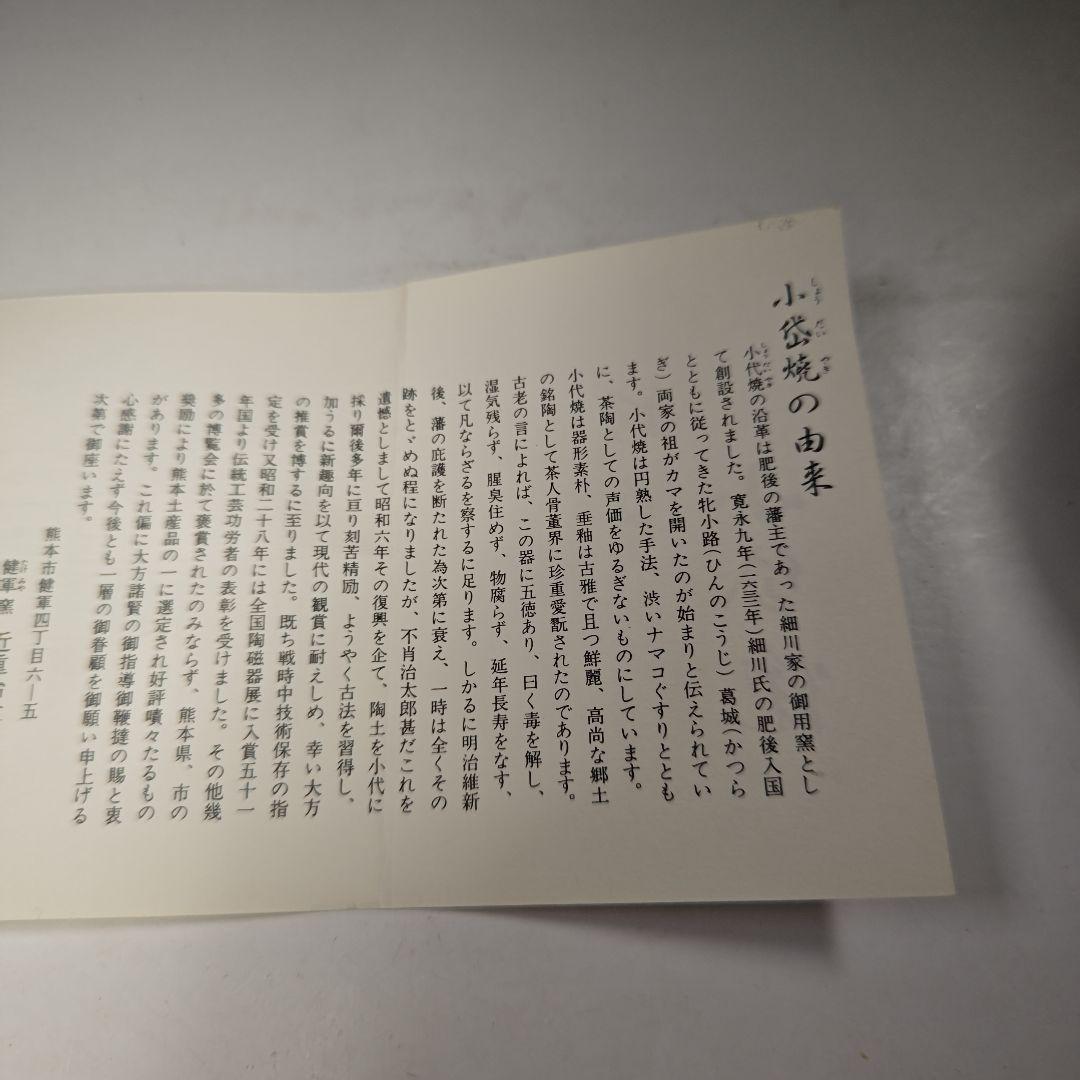 小岱焼の由来
しょうだいやき
小代焼の沿革は肥後の藩主であった細川家の御用窯とし
しょうだいやき
て創設されました。寛永九年(一六三二年)細川氏の肥後入国
とともに従ってきた牝小路(ひんのこうじ)葛城(かつら
ぎ)両家の祖がカマを開いたのが始まりと伝えられてい
ます。小代焼は円熟した手法、渋いナマコぐすりととも
に、茶陶としての声価をゆるぎないものにしています。
小代焼は器形素朴、垂釉は古雅で且つ鮮麗、高尚な郷土
の銘陶として茶人骨董界に珍重愛翫されたのであります。
古老の言によれば、この器に五徳あり、曰く毒を解し、
湿気残らず、腥臭住めず、物腐らず、延年長寿をなす、
以て凡ならざるを察するに足ります。しかるに明治維新
後、藩の庇護を断たれた為次第に衰え、一時は全くその
跡をとゞめぬ程になりましたが、不肖治太郎甚だこれを
遺憾としまして昭和六年その復興を企て、陶土を小代に
採り爾後多年に亘り刻苦精励、ようやく古法を習得し、
加うるに新趣向を以て現代の観賞に耐えしめ、幸い大方
の推賞を博するに至りました。既ち戦時中技術保存の指
定を受け又昭和二十八年には全国陶磁器展に入賞五十一
年国より伝統工芸功労者の表彰を受けました。その他幾
多の博覧会に於て褒賞されたのみならず、熊本県、市の
奨励により熊本土産品の一に選定され好評嘖々たるもの
があります。これ偏に大方諸賢の御指導御鞭撻の賜と衷
心感謝にたえず今後とも一層の御眷顧を御願い申上げる
次第で御座います。
熊本市健軍四丁目六―五
健軍窯 近重